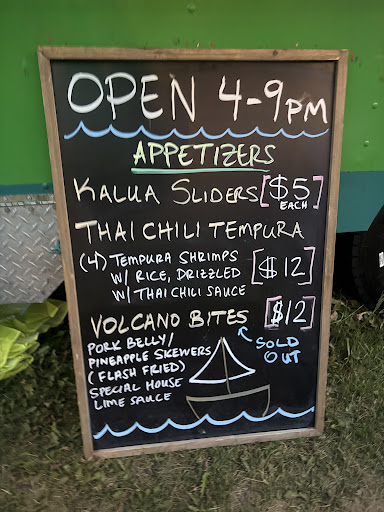 OPEN 4-9PM
APPETIZERS
KALUA SLIDERS [$5 EACH]
THAI CHILI TEMPURA
(4) TEMPURA SHRIMPS
W/ RICE, DRIZZLED [$12]
W/ THAI CHILI SAUCE
VOLCANO BITES [$12]
PORK BELLY/
PINEAPPLE SKEWERS
(FLASH FRIED)
SPECIAL HOUSE
LIME SAUCE
SOLD
OUT